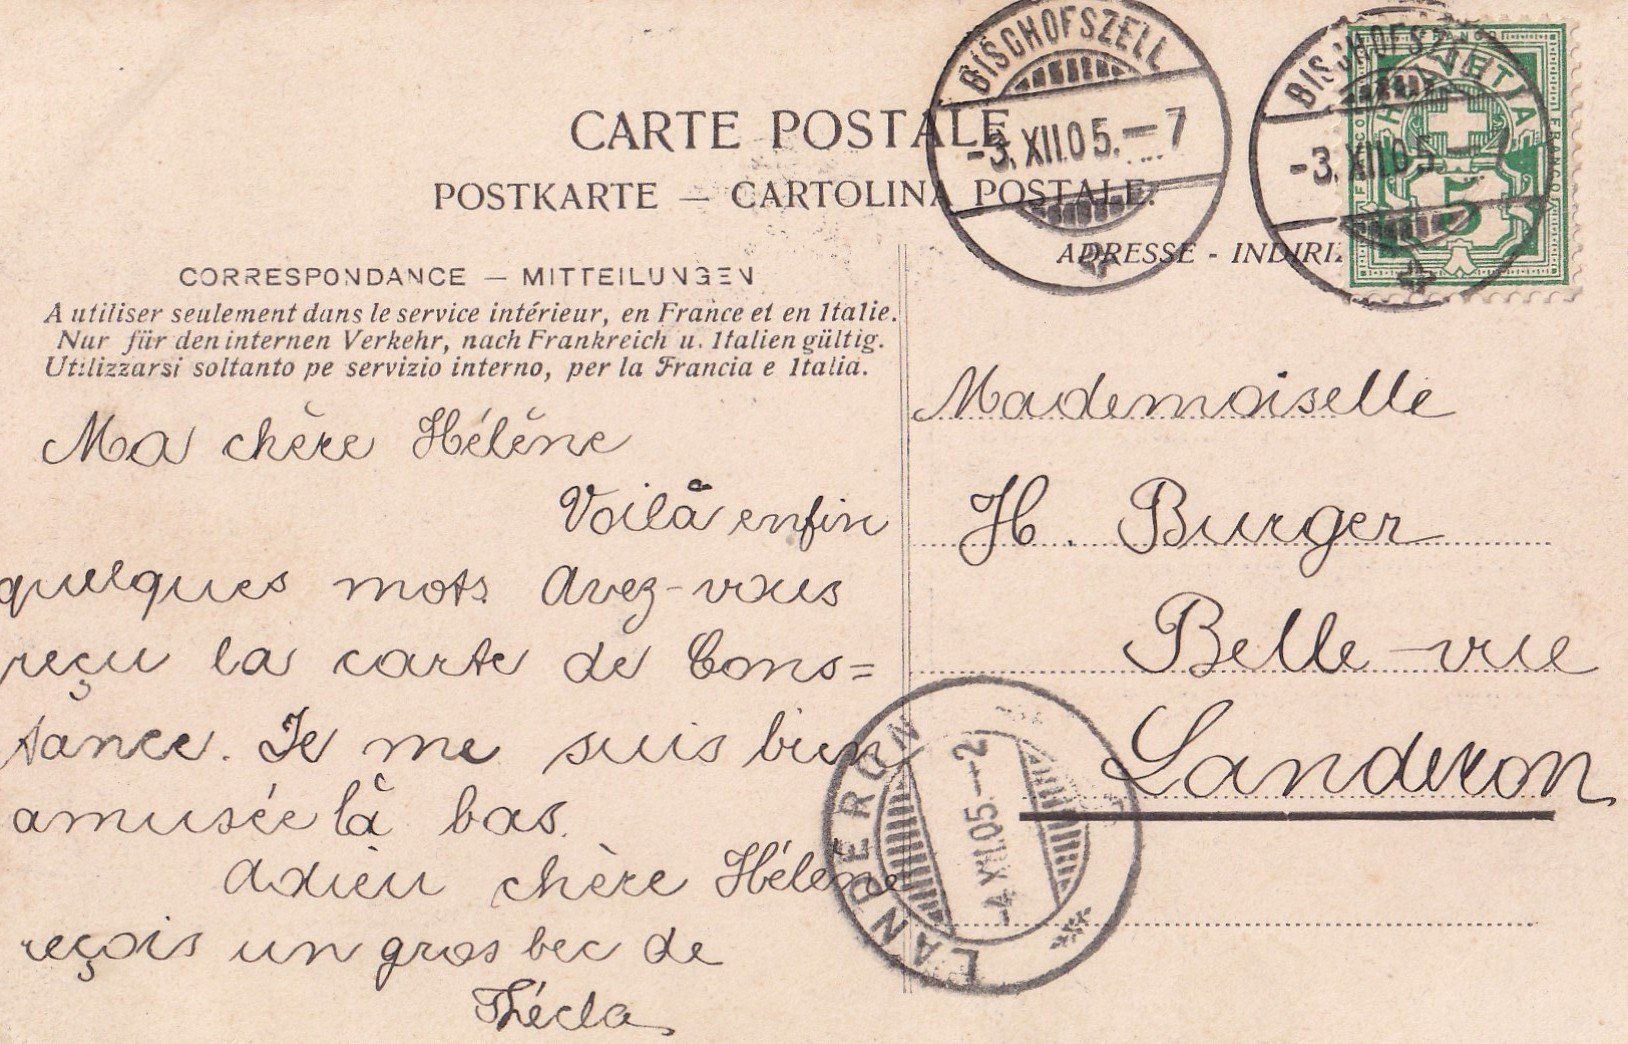 CARTE POSTALE
POSTKARTE — CARTOLINA POSTALE.
BISCHOFSZELL
-3.XII.05.—7
BISCHOFSZELL
-3.XII.05.—7
FRANCO
HELVETIA
FRANCO
5
CORRESPONDANCE — MITTEILUNGEN
A utiliser seulement dans le service intérieur, en France et en Italie.
Nur für den internen Verkehr, nach Frankreich u. Italien gültig.
Utilizzarsi soltanto pe servizio interno, per la Francia e Italia.
Ma chère Hélène
Voilà enfin
quelques mots. Avez-vous
reçu la carte de Cons=
tance. Je me suis bien
amusée là bas.
Adieu chère Hélène
reçois un gros bec de
Thécla
ADRESSE - INDIRIZ
Mademoiselle
H. Burger
Belle-vue
Landeron
LANDERON
-4.XII.05.—2